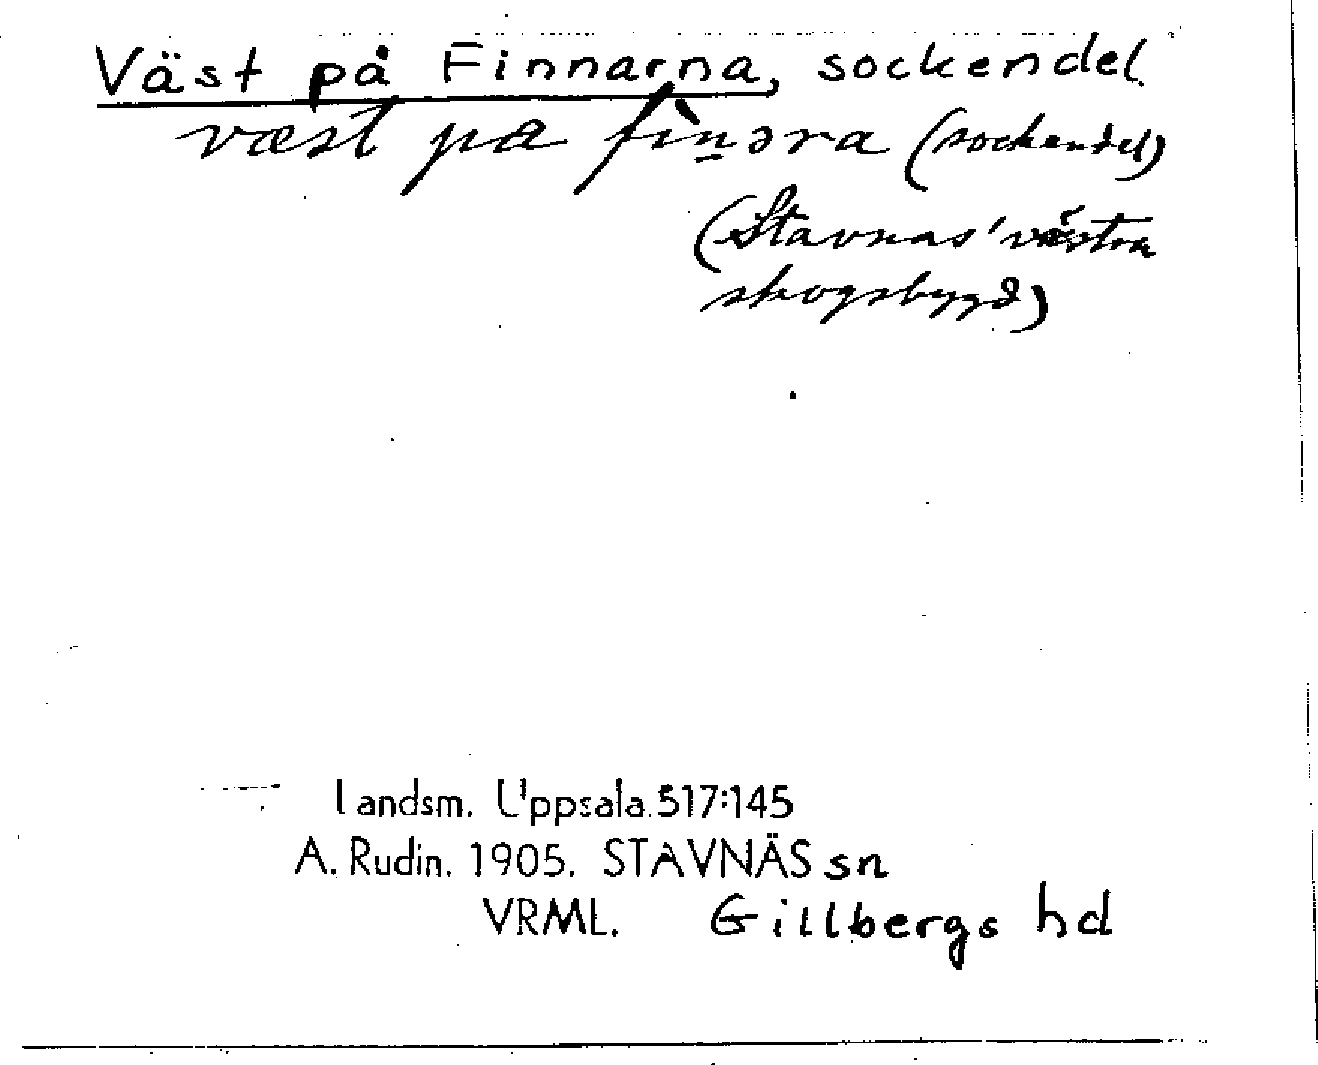 Väst på Finnarna, sockendel
væst pa fìn̠əra (sockendel)
(Stavnäs' västra
skogsbygd)
Landsm. Uppsala 517:145
A. Rudin. 1905. STAVNÄS sn
VRML. Gillbergs hd